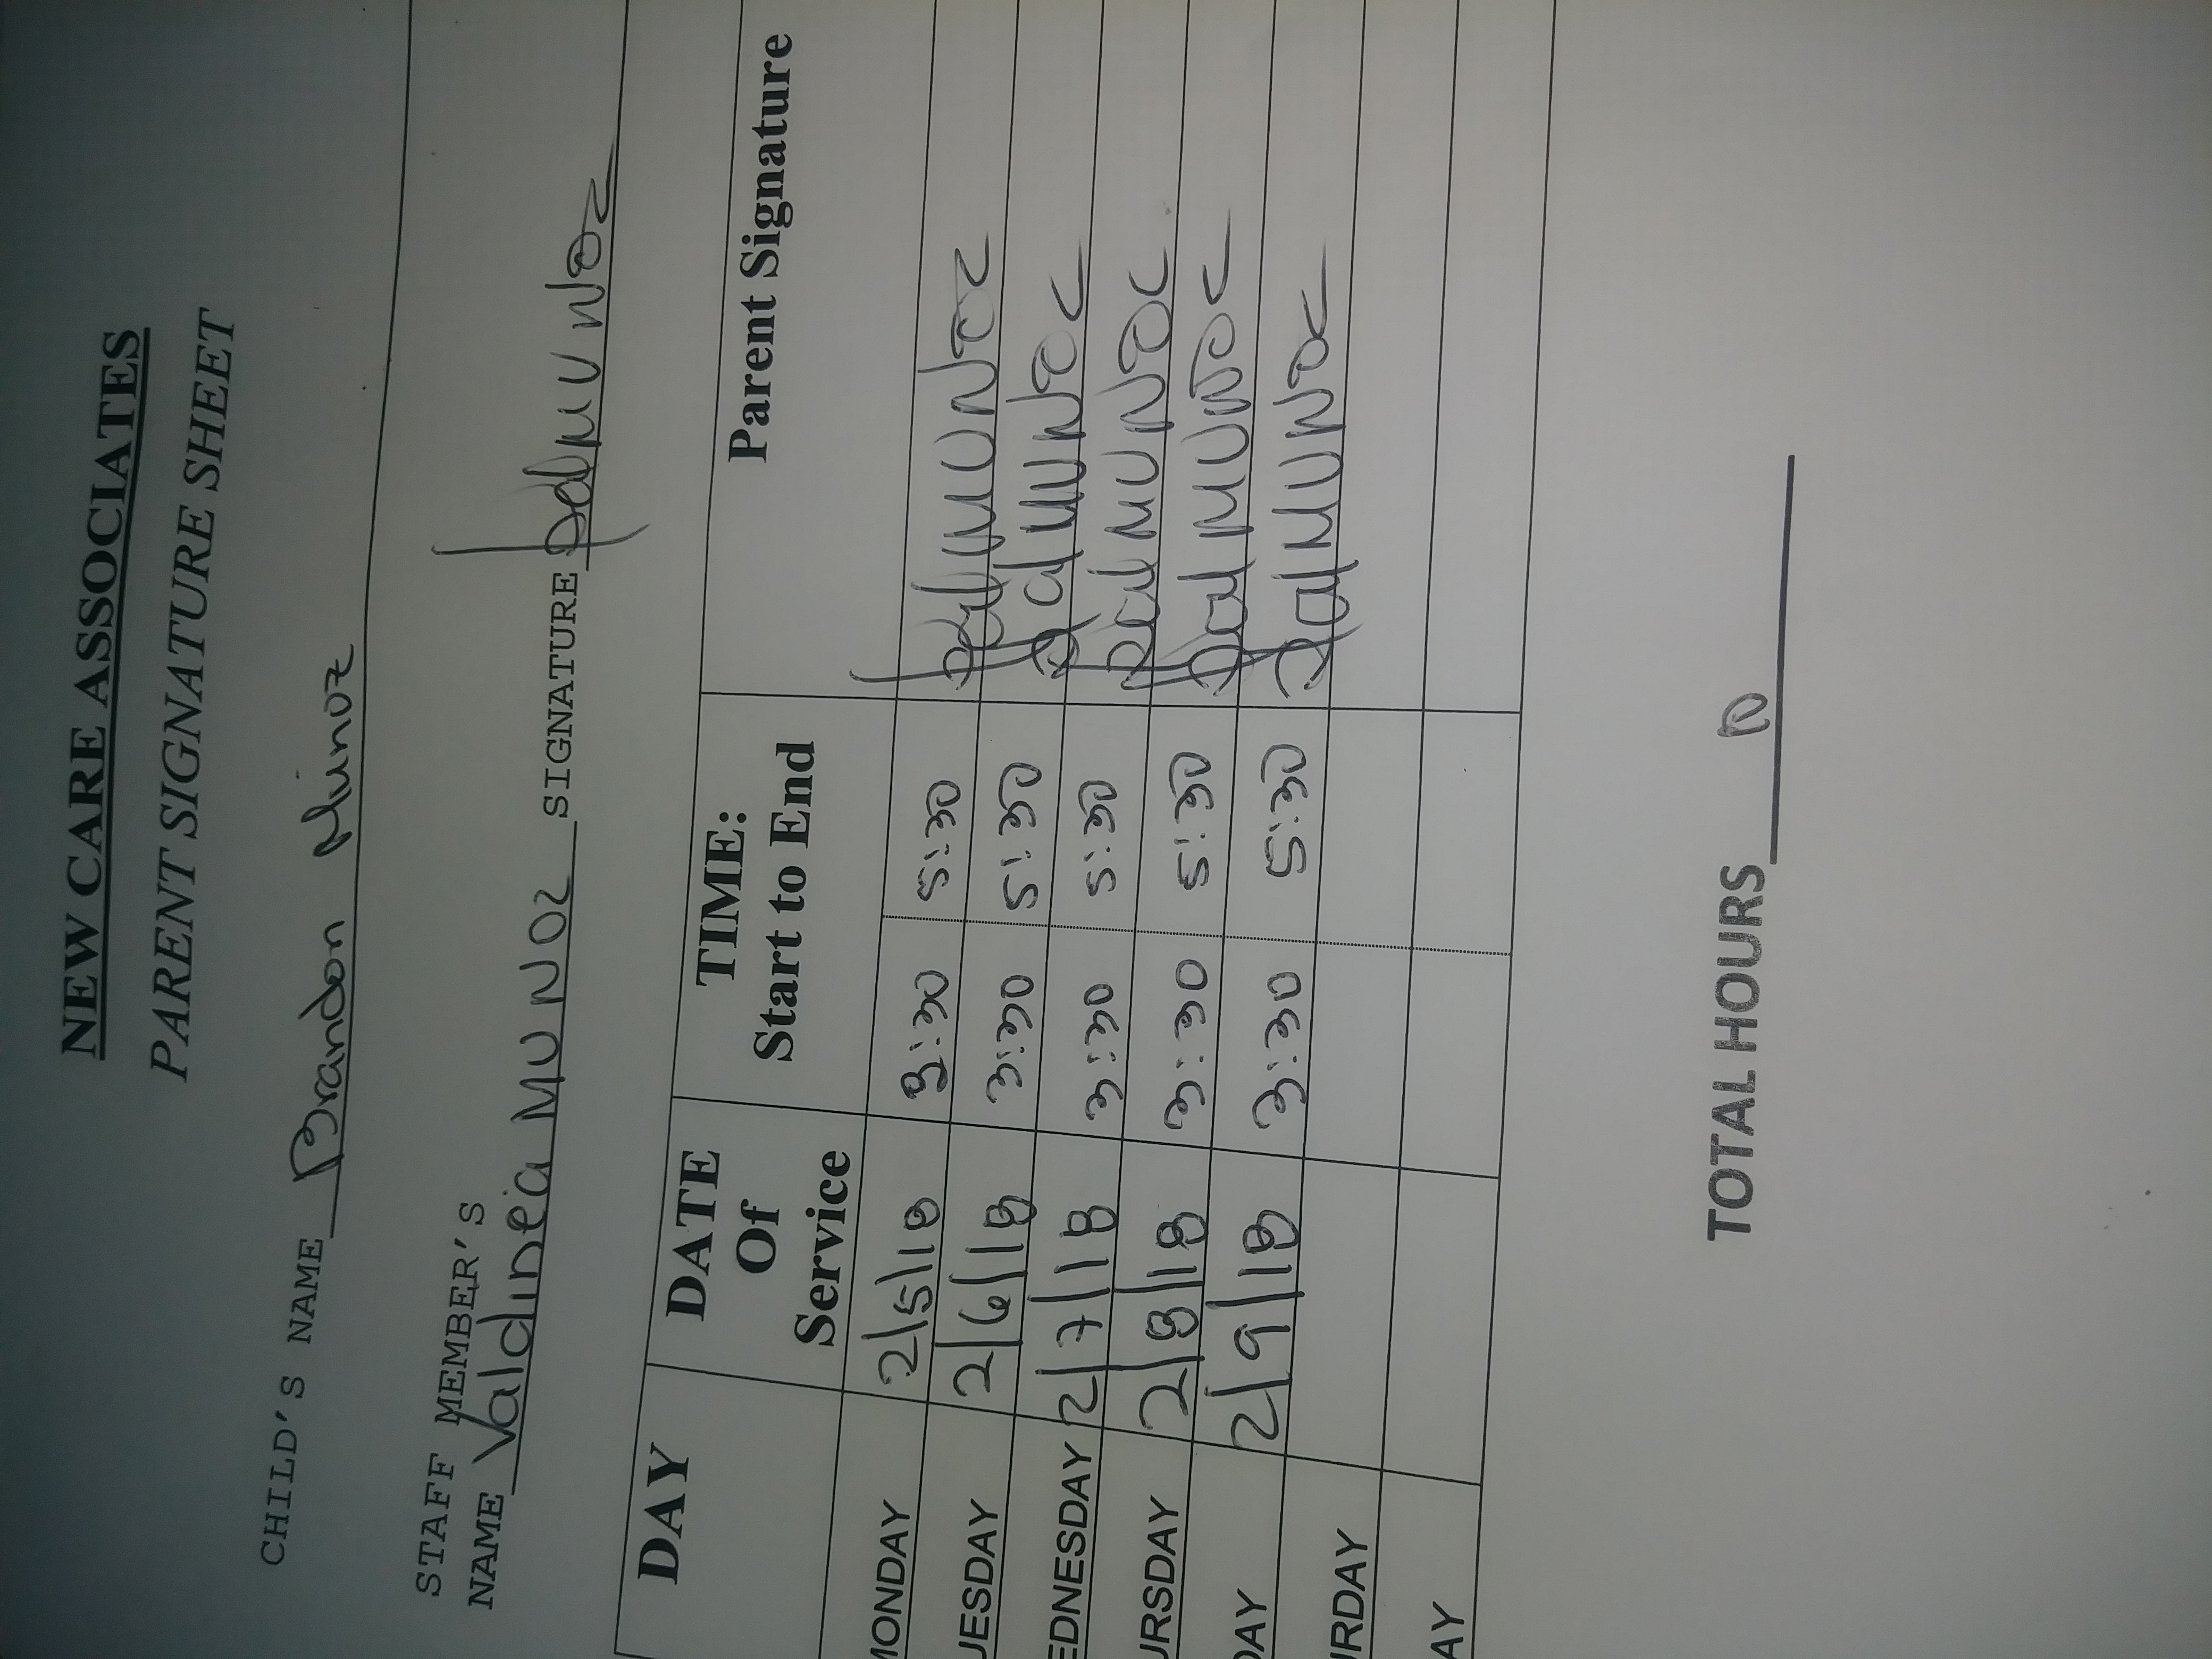 NEW CARE ASSOCIATES
PARENT SIGNATURE SHEET
CHILD'S NAME Brandon Munoz
STAFF MEMBER'S
NAME Valdinea MUNOZ SIGNATURE MUNOZ
DAY DATE Of Service TIME: Start to End Parent Signature
MONDAY 2/5/18 3:30 5:30 MUNOZ
UESDAY 2/6/18 3:30 5:30 MUNOZ
EDNESDAY 2/7/18 3:30 5:30 MUNOZ
URSDAY 2/8/18 3:30 5:30 MUNOZ
DAY 2/9/18 3:30 5:30 MUNOZ
URDAY
AY
TOTAL HOURS 10